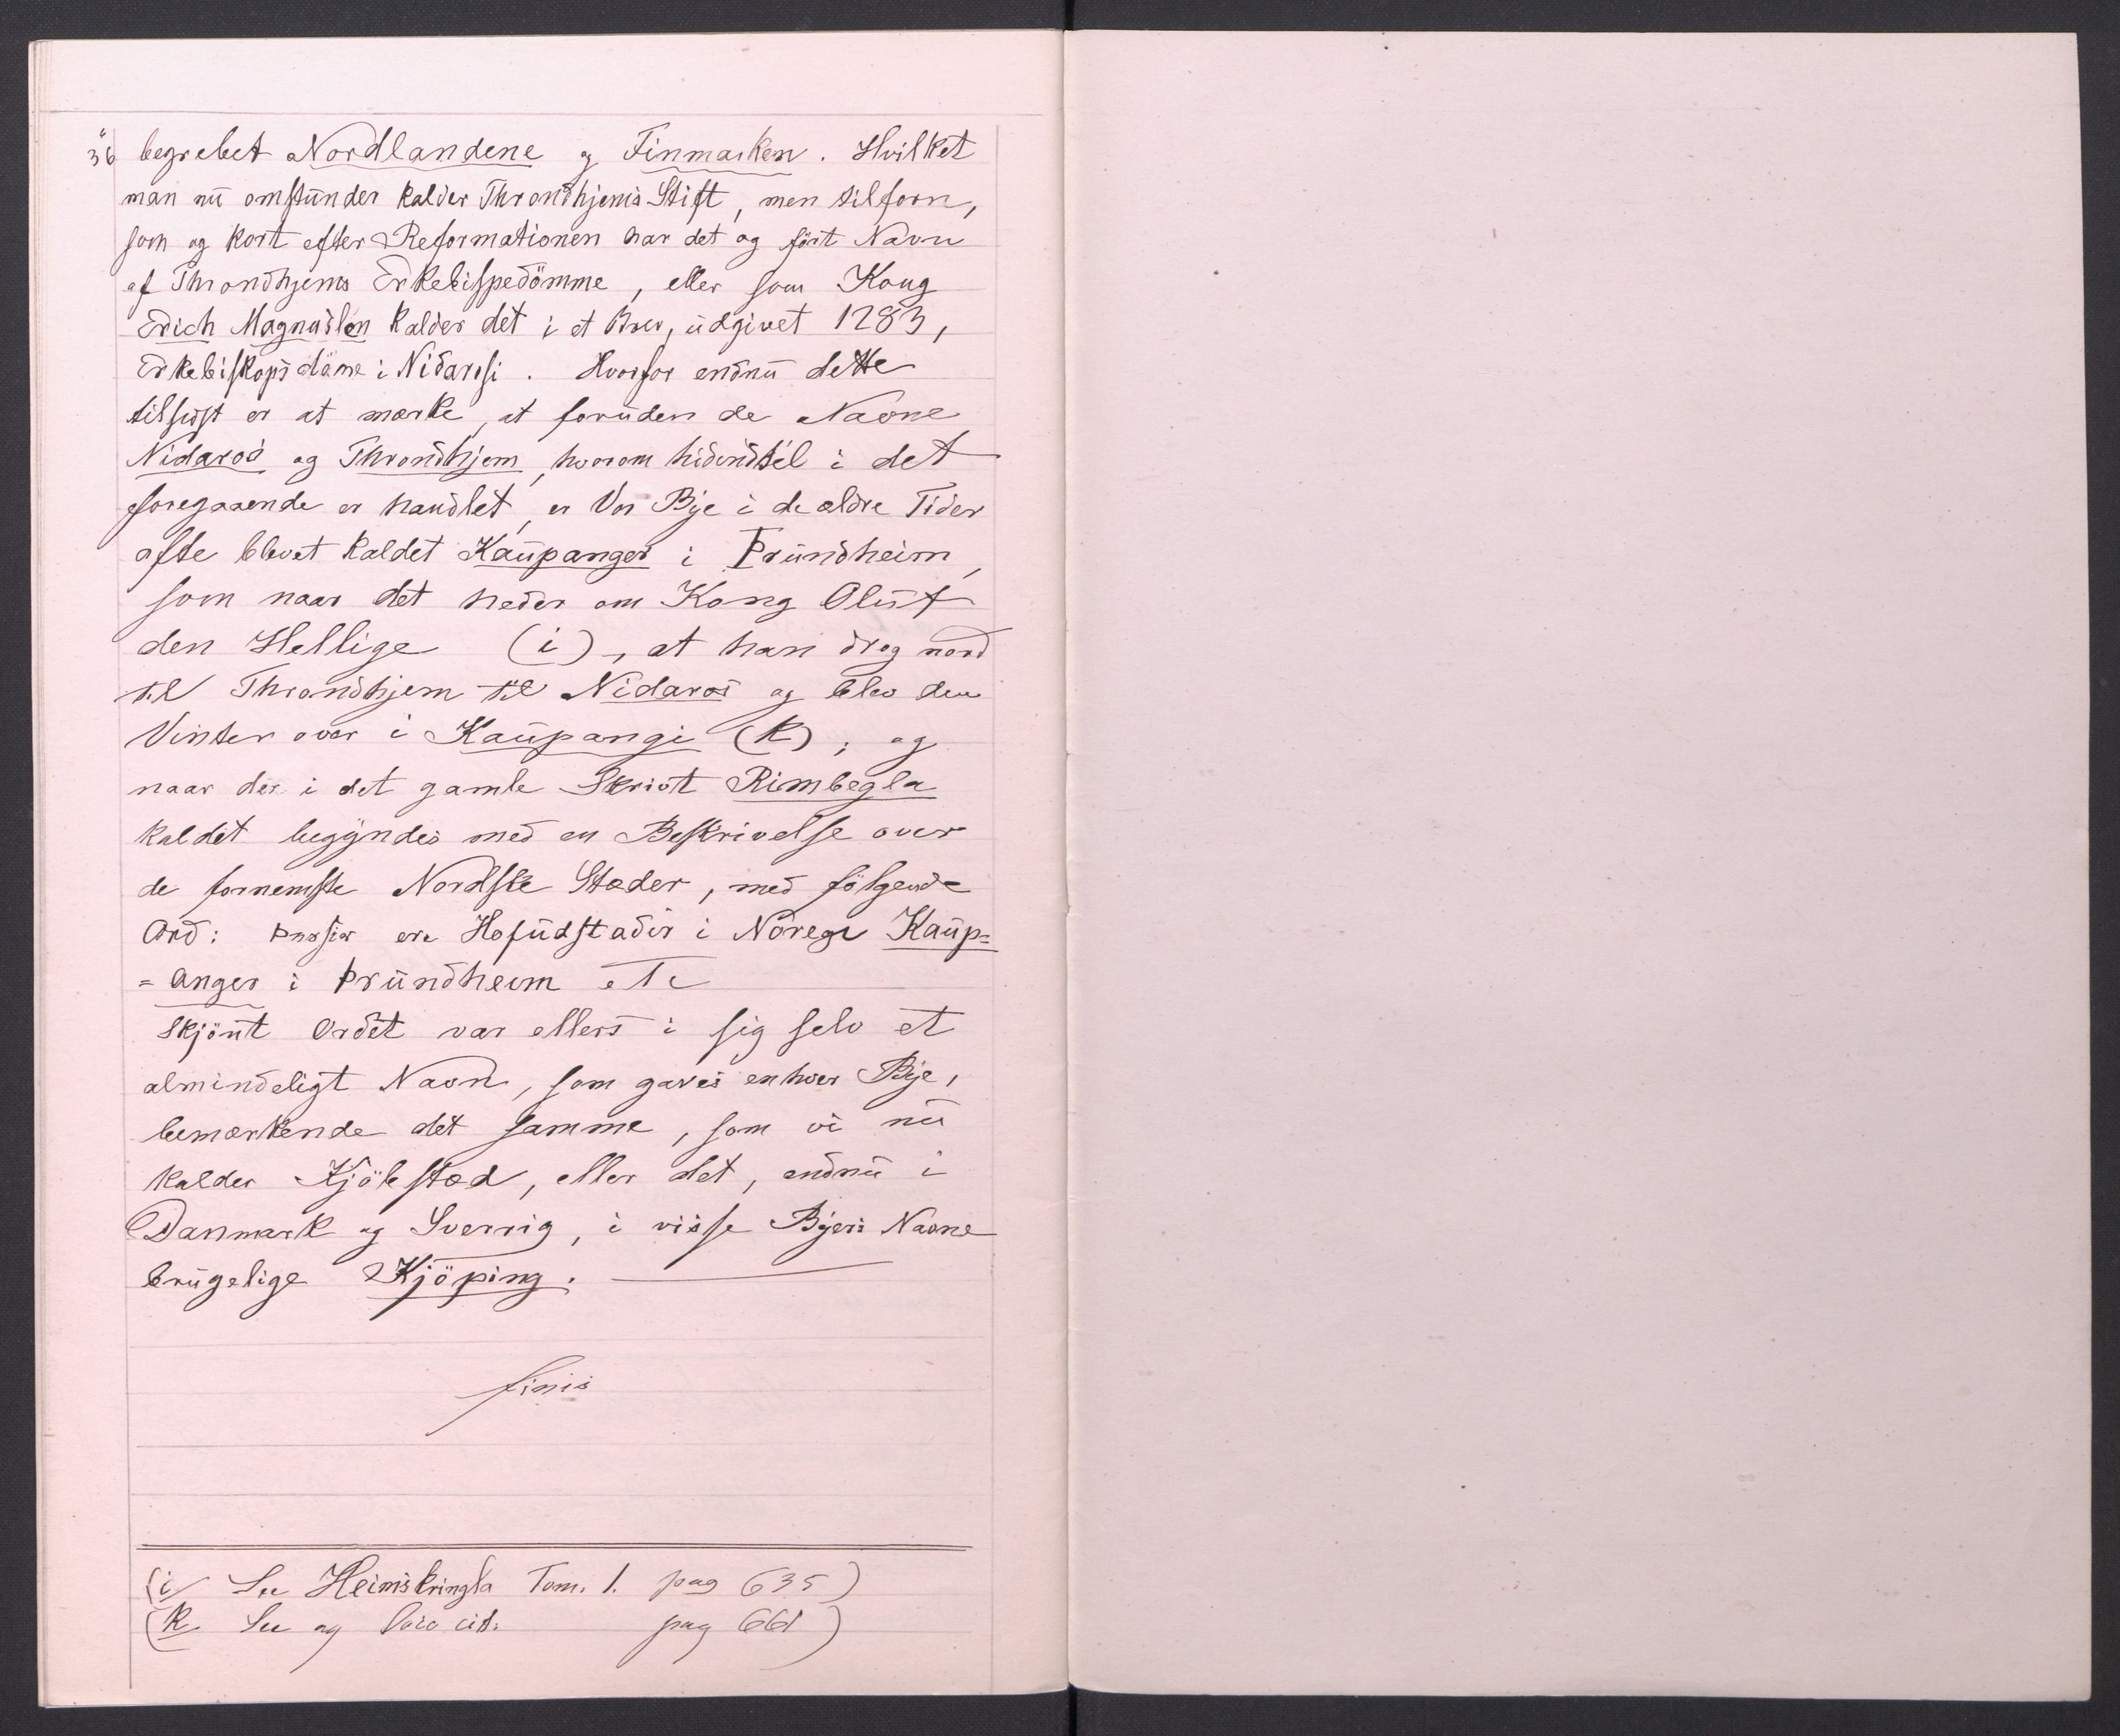 36 begrebet Nordlandene og Finmarken. Hvilket
man nu omstunder kalder Throndhjems Stift, men tilforn,
som og kort efter Reformationen har det og ført Navn
af Throndhjems Erkebispedömme, eller som Kong
Erich Magnusøn kalder det i et Brev, udgivet 1283,
Erkebiskopsdöme i Nidarosi. Hvorfor endnu dette
tilsidst er at mærke, at foruden de Navne
Nidaros og Throndhjem, hvorom hidindtil i det
foregaaende er handlet, er Vor Bye i de ældre Tider
ofte blevet kaldet Kaupanger i Þrundheim,
som naar det heder om Kong Oluf
den Hellige (i), at han drog nord
til Throndhjem til Nidaros og blev den
Vinter over i Kaupangi (k); og
naar der i det gamle Skrivt Rimbegla
kaldet begyndes med en Beskrivelse over
de fornemste Nordske Stæder, med følgende
Ord: Þessir ero Hofudstadir i Noregi Kaup=
=anger i Þrundheim etc
Skjönt Ordet var ellers i sig selv et
almindeligt Navn, som gaves enhver Bye,
bemærkende det samme, som vi nu
kalder Kjöbstæd, eller det, endnu i
Danmark og Sverrig, i visse Byers Navne
brugelige Kjöping.
finis
(i See Heimskringla Tom. 1. pag 635)
(k See og loco cit. pag 661)